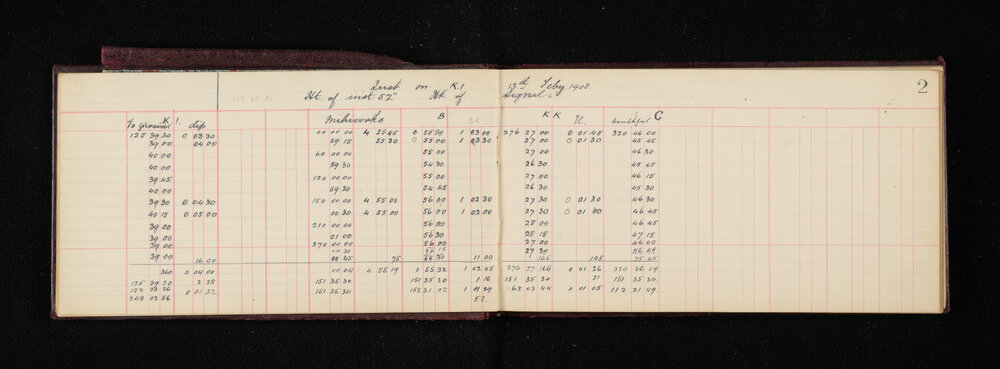 2
Inst on K.1 13th Feby 1908.
151 35 30 Ht. of inst 52" Ht of Signal
K 1. B El K K C
To ground dip El. doubtful
125 39 30 0 03 30 00 00 00 4 55 45 0 55 30 1 03 00 276 27 00 0 01 45 320 46 00
39 00 04 00 59 15 55 30 0 55 00 1 03 30 27 00 0 01 30 45 45
40 00 60 00 00 55 00 27 00 46 30
40 00 59 30 54 30 26 30 45 45
39 45 120 00 00 55 00 27 00 46 15
40 00 59 30 54 45 26 30 45 30
39 30 0 04 30 150 00 00 4 55 00 56 00 1 02 30 27 30 0 01 30 46 30
40 15 0 05 00 00 30 4 55 00 56 00 1 02 00 27 30 0 01 00 46 45
39 00 210 00 00 56 00 28 00 46 45
39 00 01 00 56 30 28 15 47 15
39 00 270 00 00 56 00 27 00 46 00
00 30 56 15 27 30
39 00 16 00 00 45 75 56 30 11 00 165 105 75 45
360 0 04 00 00 04 4 55 19 0 55 32 1 02 45 276 27 164 0 01 26 320 46 19
125 39 30 2 28 151 35 30 151 35 30 1 16 151 35 30 21 151 35 30
122 23 26 0 01 32 151 35 34 152 31 02 1 01 29 68 02 44 0 01 05 112 21 49
248 02 56 El.